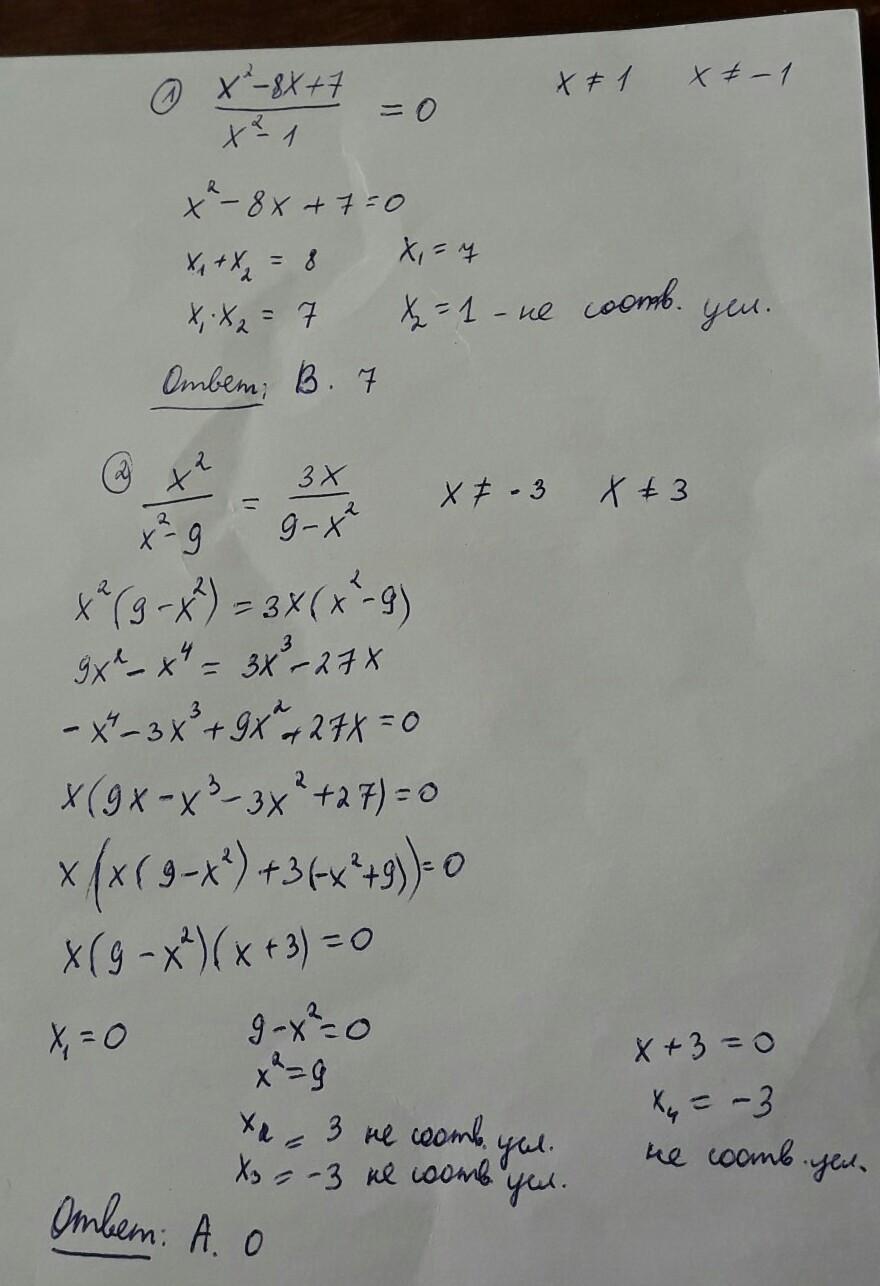 ① (x² - 8x + 7)/(x² - 1) = 0 x ≠ 1 x ≠ -1
x² - 8x + 7 = 0
x₁ + x₂ = 8 x₁ = 7
x₁ · x₂ = 7 x₂ = 1 - не соотв. усл.
Ответ: В. 7
② x²/(x² - 9) = 3x/(9 - x²) x ≠ -3 x ≠ 3
x²(9 - x²) = 3x(x² - 9)
9x² - x⁴ = 3x³ - 27x
-x⁴ - 3x³ + 9x² + 27x = 0
x(9x - x³ - 3x² + 27) = 0
x(x(9 - x²) + 3(-x² + 9)) = 0
x(9 - x²)(x + 3) = 0
x₁ = 0 9 - x² = 0 x + 3 = 0
x² = 9 x₄ = -3
x₂ = 3 не соотв. усл. не соотв. усл.
x₃ = -3 не соотв. усл.
Ответ: А. 0